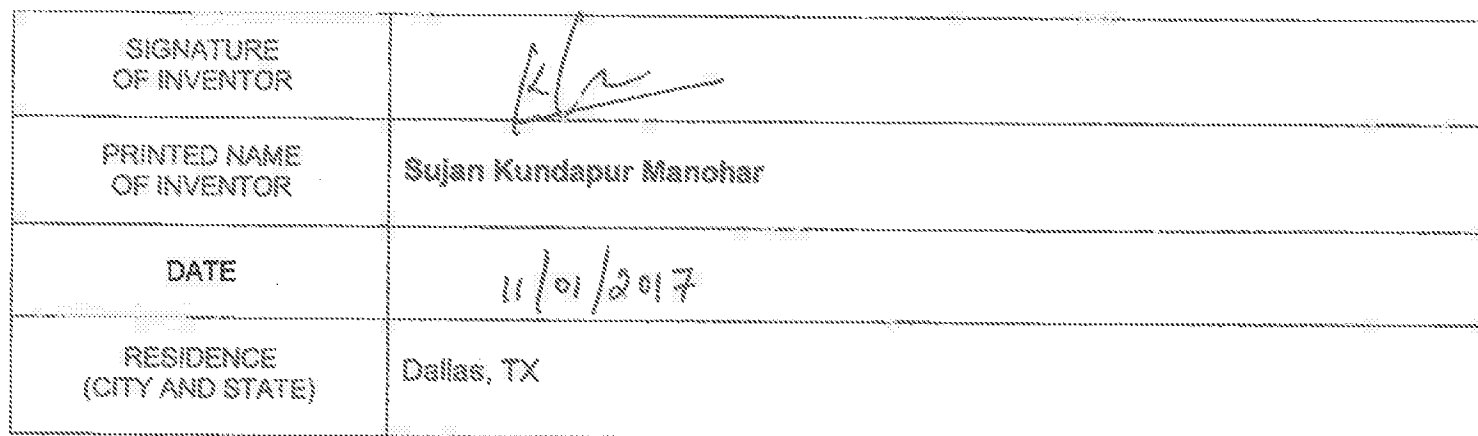 SIGNATURE
OF INVENTOR
PRINTED NAME
OF INVENTOR
Sujan Kundapur Manohar
DATE
11/01/2017
RESIDENCE
(CITY AND STATE)
Dallas, TX